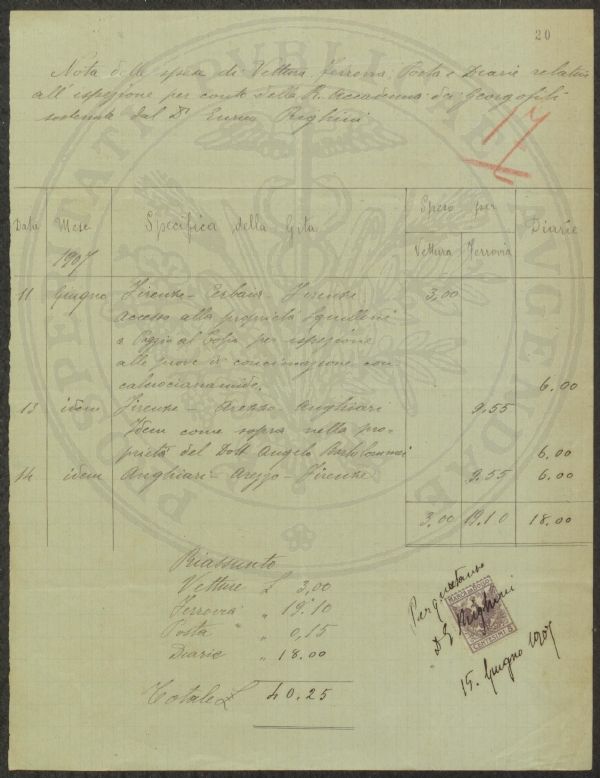 20
Nota delle spese di Vettura, Ferrovia, Posta e Diarie relative
all'ispezione per conto della R. Accademia dei Georgofili
sostenute dal Dr Enrico Righini
17
Data Mese Specifica della Gita Spese per Diarie
Vettura Ferrovia
1907
11 Giugno Firenze - - Firenze 3,00
accesso alla proprietà
a Poggio al per ispezione
alle prove di concimazione con
calciocianamide. 6.00
13 idem Firenze - Arezzo - Anghiari 9.55
Idem come sopra nella pro-
prietà del Dott Angelo Bartolommei 6.00
14 idem Anghiari - Arezzo - Firenze 9.55 6.00
3,00 19.10 18.00
Riassunto
Vetture £ 3,00
Ferrovia " 19.10
Posta " " 0,15
Diarie " 18.00
Totale £ 40.25
Per quietanza
Dr E Righini
15. Giugno 1907
MARCA DA BOLLO
CENTESIMI 5
PROSPERITATI PUBLICAE AUGENDAE